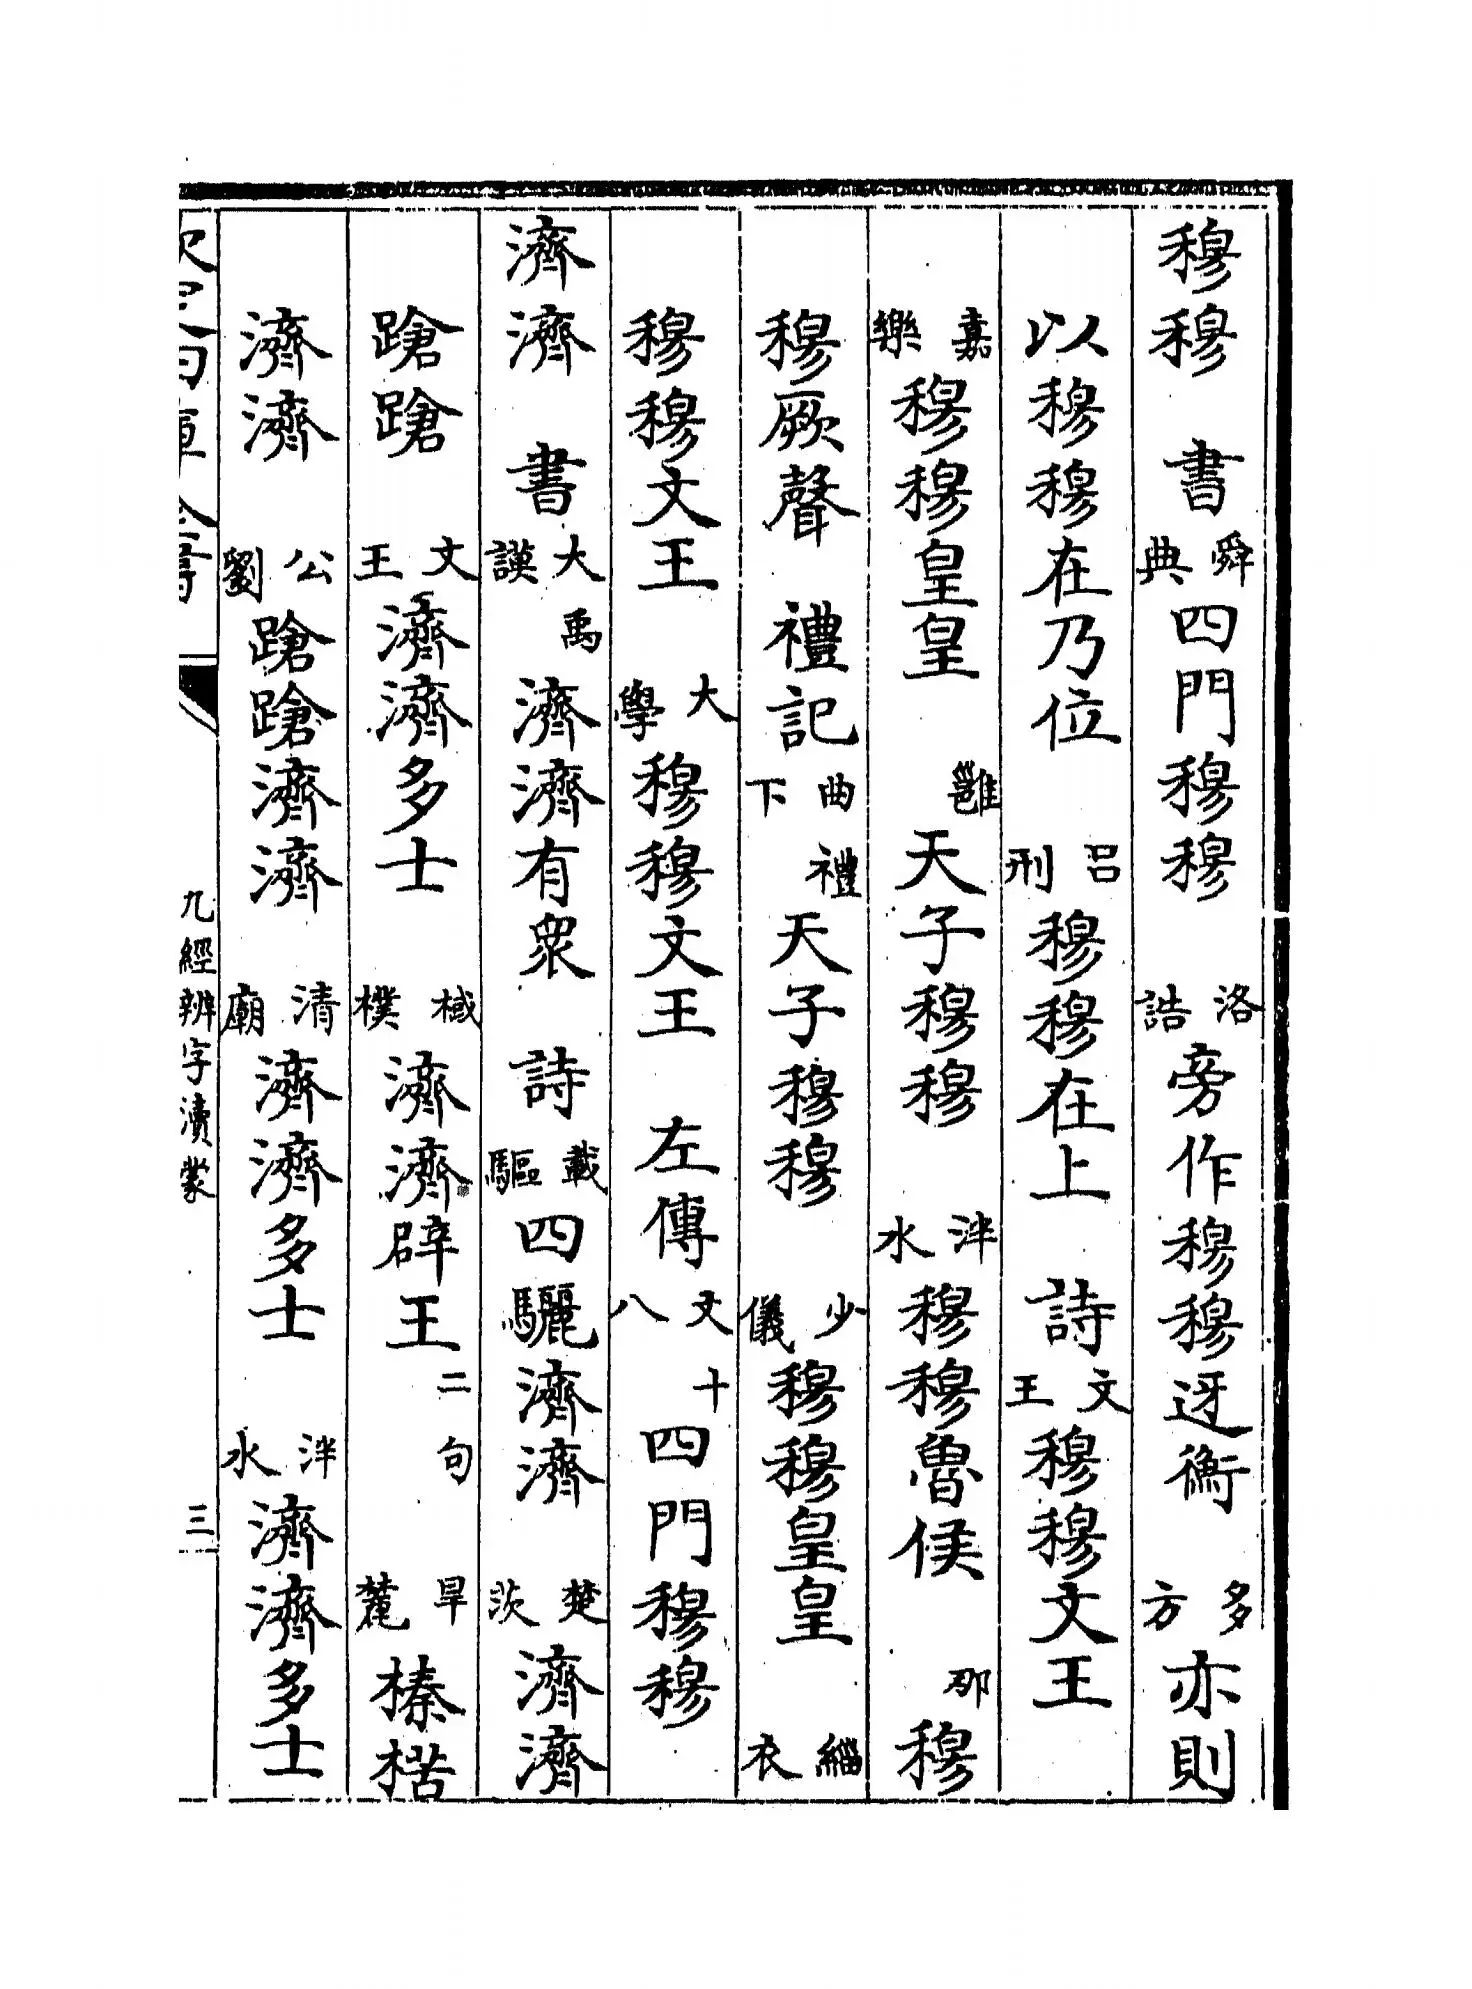 穆穆 書 舜典 四門穆穆 洛誥 旁作穆穆迓衡 多方 亦則
以穆穆在乃位 呂刑 穆穆在上 詩 文王 穆穆文王
嘉樂 穆穆皇皇 雝 天子穆穆 泮水 穆穆魯侯 那 穆
穆厥聲 禮記 曲禮下 天子穆穆 少儀 穆穆皇皇 緇衣
穆穆文王 大學 穆穆文王 左傳 文十八 四門穆穆
濟濟 書 大禹謨 濟濟有衆 詩 載驅 四驪濟濟 楚茨 濟濟
蹌蹌 文王 濟濟多士 棫樸 濟濟辟王 二句 旱麓 榛楛
濟濟 公劉 蹌蹌濟濟 清廟 濟濟多士 泮水 濟濟多士
九經辨字瀆蒙 三